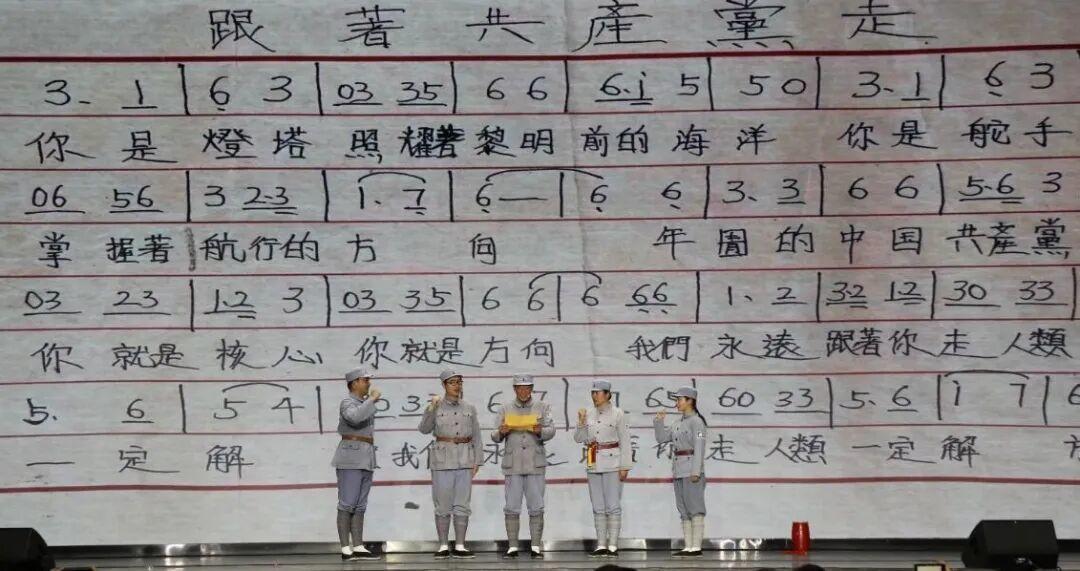 跟著共產黨走
3. 1 | 6 3 | 03 35 | 6 6 | 6.i 5 | 5 0 | 3. 1 | 6 3
你是燈塔照耀著黎明前的海洋 你是舵手
06 56 | 3 2.3 | 1. 7 | 6 — | 6 6 | 3. 3 | 6 6 | 5.6 3
掌握著航行的方向 年圕的中国共產黨
03 23 | 1.2 3 | 03 35 | 6 6 | 6 66 | 1. 2 | 32 12 | 30 33
你就是核心 你就是方向 我們永遠跟著你走人類
5. 6 | 5 4 | 65 | 60 33 | 5. 6 | 1 7 | 6
一定解 我 你走人類一定解